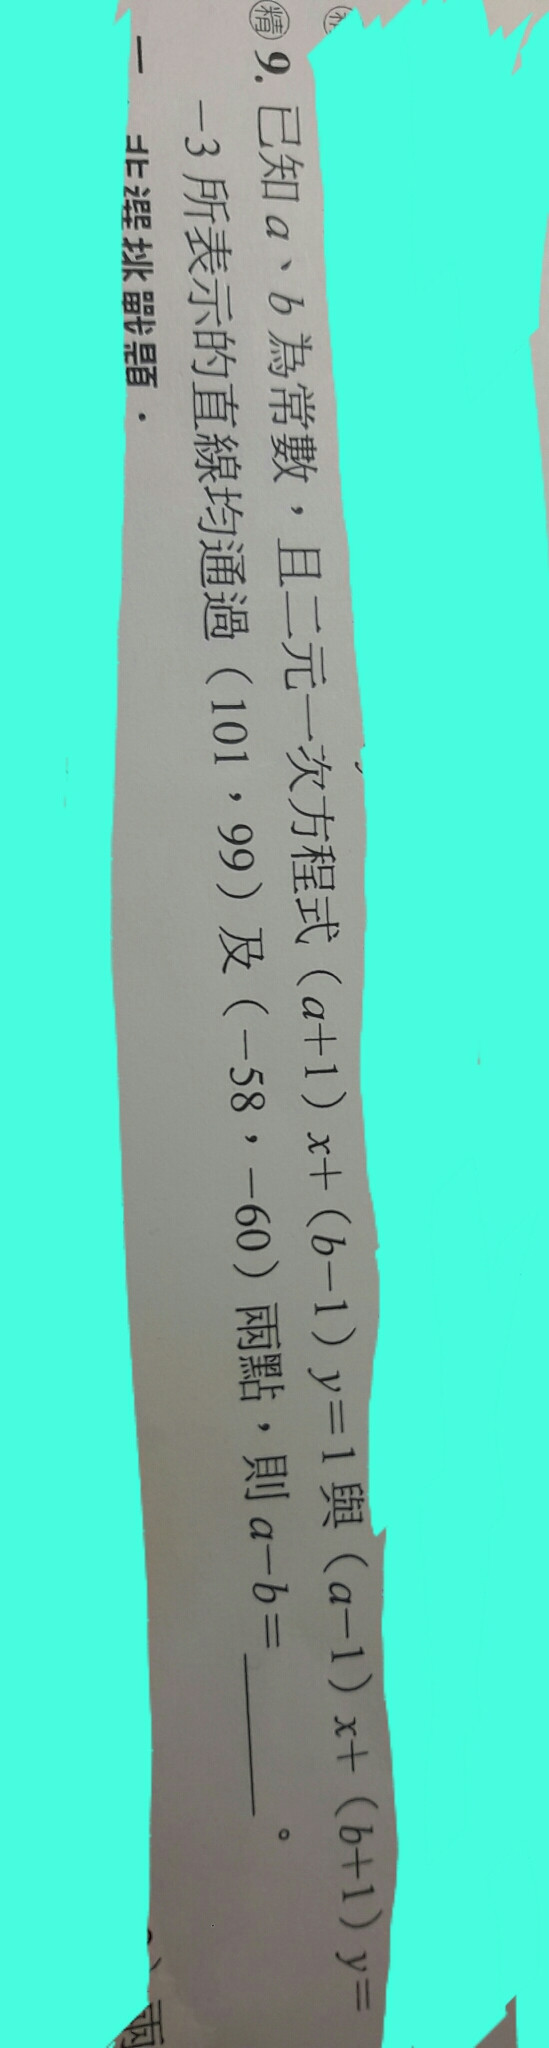 精9. 已知 a、b 為常數，且二元一次方程式（a+1）x+（b−1）y=1 與（a−1）x+（b+1）y=
−3 所表示的直線均通過（101，99）及（−58，−60）兩點，則 a−b=______。
挑戰題．
兩